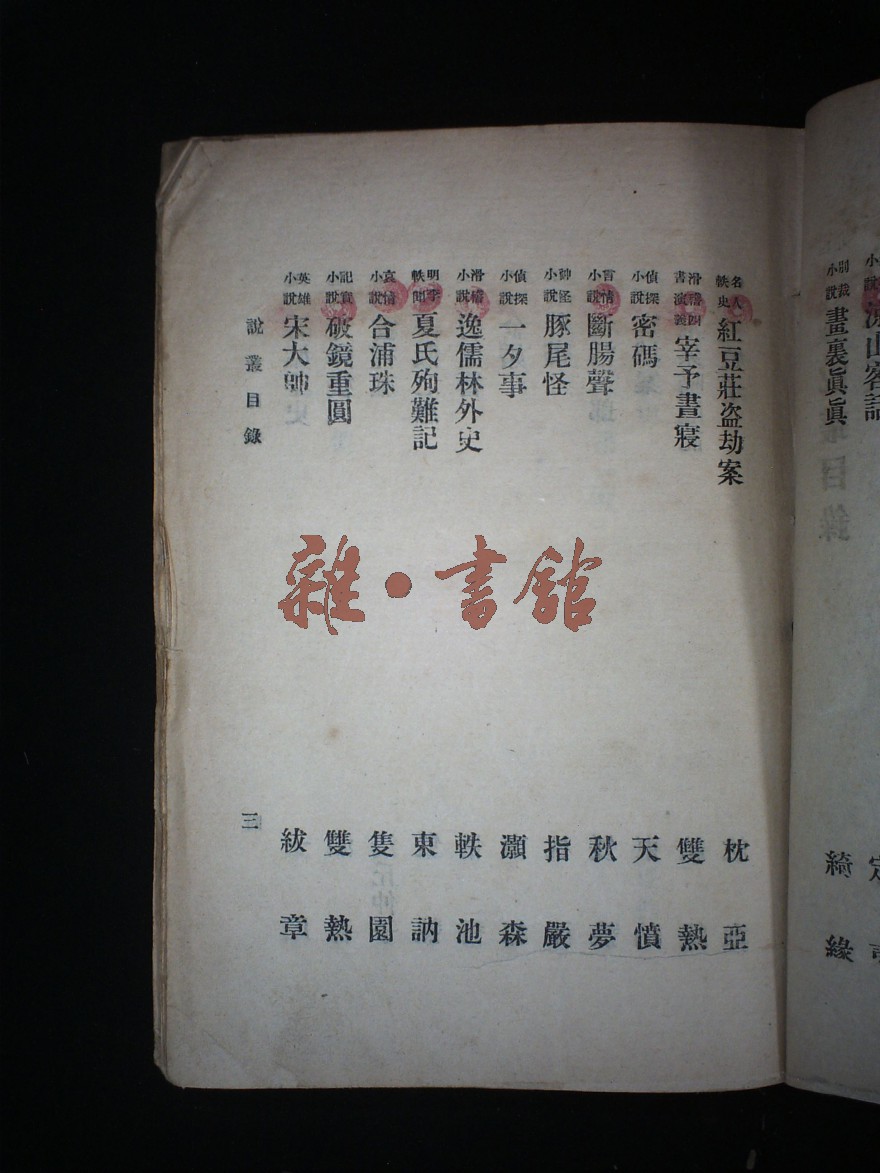 小說
別裁小說 畫裏眞眞 綺緣
名人軼史 紅豆莊盗劫案 枕亞
滑稽四書演義 宰予晝寢 雙熱
偵探小說 密碼 天憤
言情小說 斷腸聲 秋夢
神怪小說 豚尾怪 指嚴
偵探小說 一夕事 灝森
滑稽小說 逸儒林外史 軼池
明季軼聞 夏氏殉難記 東訥
哀情小說 合浦珠 隻園
記實小說 破鏡重圓 雙熱
英雄小說 宋大帥 紱章
說叢目錄 三
雜·書館